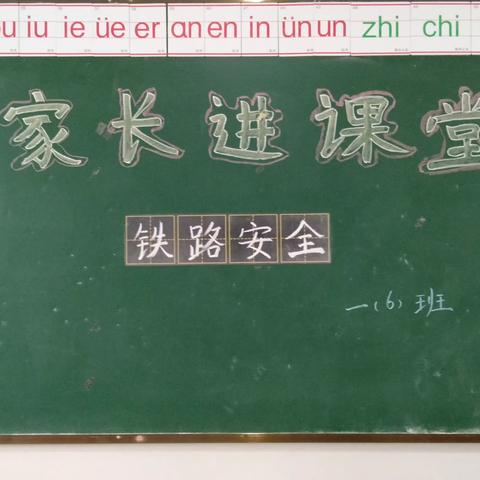 iu ie üe er an en in ün un zhi chi
家长进课堂
铁路安全
一(6)班